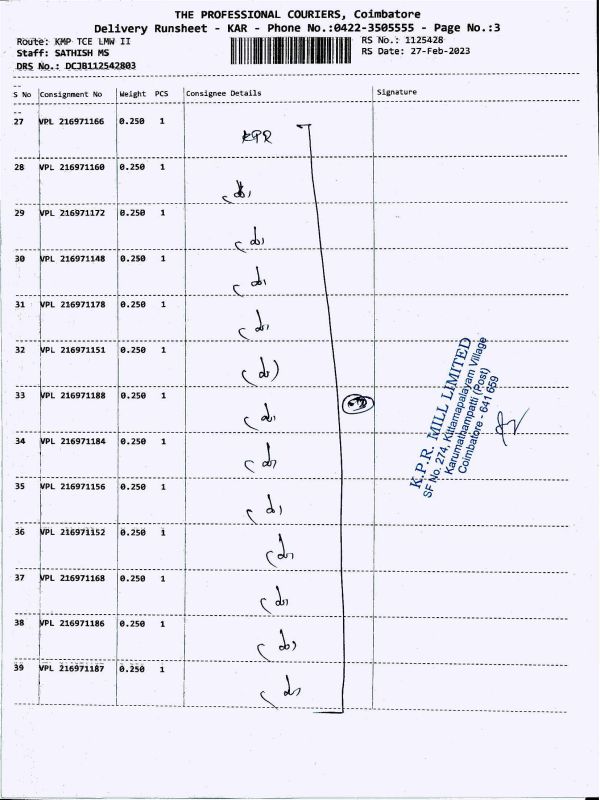 THE PROFESSIONAL COURIERS, Coimbatore
Delivery Runsheet - KAR - Phone No.:0422-3505555 - Page No.:3
Route: KMP TCE LMW II
RS No.: 1125428
Staff: SATHISH MS
RS Date: 27-Feb-2023
DRS No.: DCJB112542803
S No Consignment No Weight PCS Consignee Details Signature
27 VPL 216971166 0.250 1
KPR
28 VPL 216971160 0.250 1
29 VPL 216971172 0.250 1
30 VPL 216971148 0.250 1
31 VPL 216971178 0.250 1
32 VPL 216971151 0.250 1
33 VPL 216971188 0.250 1
34 VPL 216971184 0.250 1
35 VPL 216971156 0.250 1
36 VPL 216971152 0.250 1
37 VPL 216971168 0.250 1
38 VPL 216971186 0.250 1
39 VPL 216971187 0.250 1
K.P.R. MILL LIMITED
SF No. 274, Kittamapalayam Village
Karumathampatti (Post)
Coimbatore - 641 659